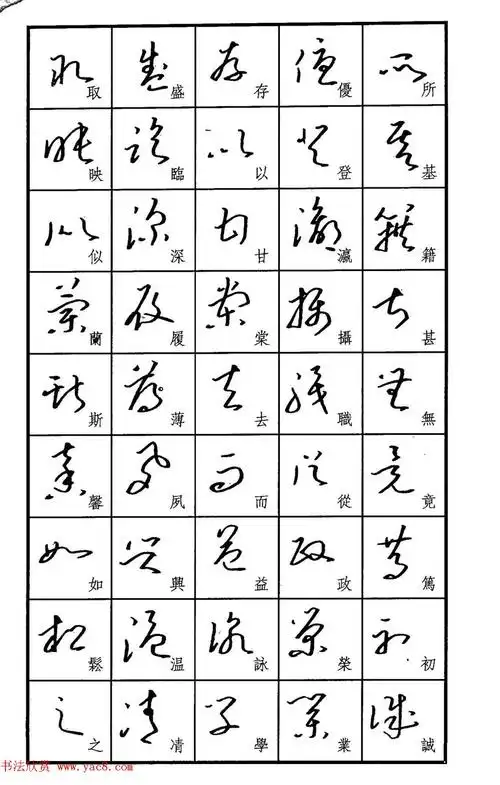 所基籍甚無竟篤初誠
優登瀛攝職從政榮業
存以甘棠去而益詠學
盛臨深履薄夙興温凊
取映似蘭斯馨如鬆之
书法欣赏 www.yac8.com